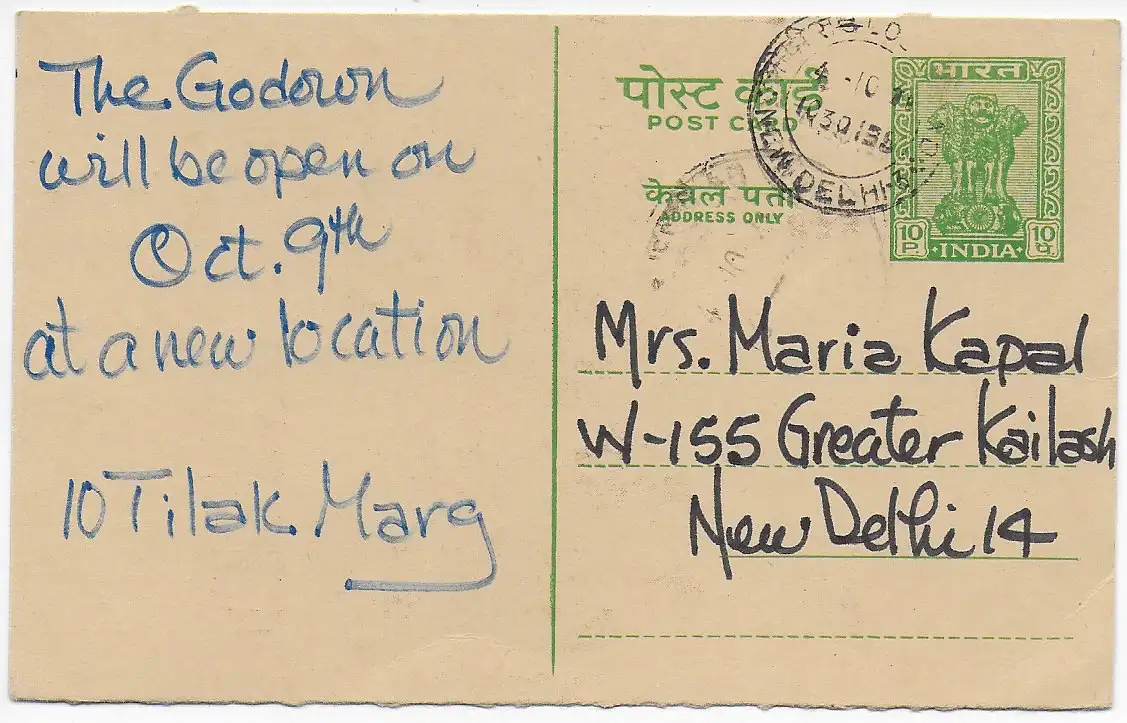 The Godown
will be open on
Oct. 9th
at a new location
10 Tilak Marg
पोस्ट कार्ड
POST CARD
केवल पता
ADDRESS ONLY
NEW DELHI
भारत
10 P. INDIA 10 पै.
Mrs. Maria Kapal
W-155 Greater Kailash
New Delhi 14